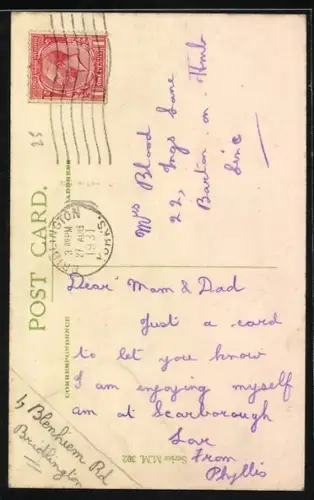 POST CARD.
CORRESPONDENCE
ADDRESS
BRIDLINGTON
27 AUG
1931
YORKS.
ONE PENNY
25
Mrs Blood
22, Ings Lane
Barton. on. Hmb
Linc
Dear Mam & Dad
Just a card
to let you know
I am enjoying myself
am at Scarborough
Love
From
Phyllis
Blenheim Rd
Bridlington
Series M.M. 302